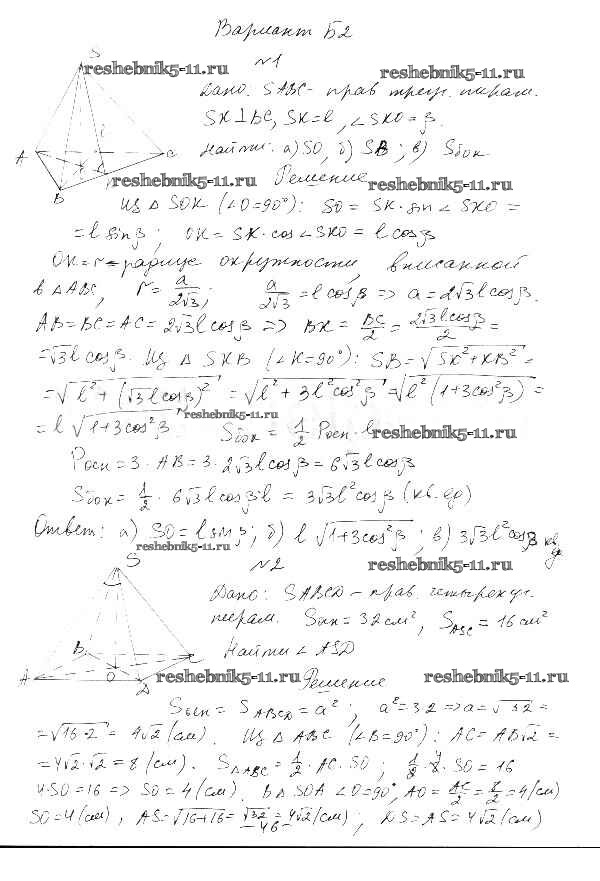 Вариант Б2
S
reshebnik5-11.ru
№1
reshebnik5-11.ru
Дано: SABC - прав. треуг. пирам.
SK⊥BC, SK=l, ∠SKO=β
A
C
Найти: а) SO, б) SB; в) Sбок
B
K
reshebnik5-11.ru
Решение
reshebnik5-11.ru
Из Δ SOK (∠O=90°): SO = SK·sin∠SKO =
= l sinβ; OK = SK·cos∠SKO = l cosβ
OK = r = радиус окружности, вписанной
в ΔABC, r = a/2√3; a/2√3 = l cosβ => a = 2√3 l cosβ.
AB=BC=AC= 2√3 l cosβ => BK = BC/2 = 2√3 l cosβ/2 =
= √3 l cosβ. Из Δ SKB (∠K=90°): SB = √SK²+KB² =
= √l²+(√3 l cosβ)² = √l²+3l²cos²β = √l²(1+3cos²β) =
= l √1+3cos²β
reshebnik5-11.ru
Sбок = 1/2 Pосн·l
reshebnik5-11.ru
Pосн = 3·AB = 3·2√3 l cosβ = 6√3 l cosβ
Sбок = 1/2 · 6√3 l cosβ·l = 3√3 l² cosβ (кв. ед)
Ответ: а) SO = l sinβ; б) l √1+3cos²β; в) 3√3 l² cosβ кв. ед
reshebnik5-11.ru
S
№2
reshebnik5-11.ru
Дано: SABCD - прав. четырехуг.
пирам. Sосн = 32 см², SASC = 16 см²
B
Найти ∠ASD
A
O
D
reshebnik5-11.ru
Решение
reshebnik5-11.ru
Sосн = SABCD = a²; a² = 32 => a = √32 =
= √16·2 = 4√2 (см). Из Δ ABC (∠B=90°): AC = AB√2 =
= 4√2·√2 = 8 (см). SΔABC = 1/2 · AC·SO; 1/2 · 8 · SO = 16
4·SO = 16 => SO = 4 (см). В Δ SOA ∠O=90°, AO = AC/2 = 8/2 = 4 (см)
SO = 4 (см), AS = √16+16 = √32 = 4√2 (см); DS = AS = 4√2 (см)